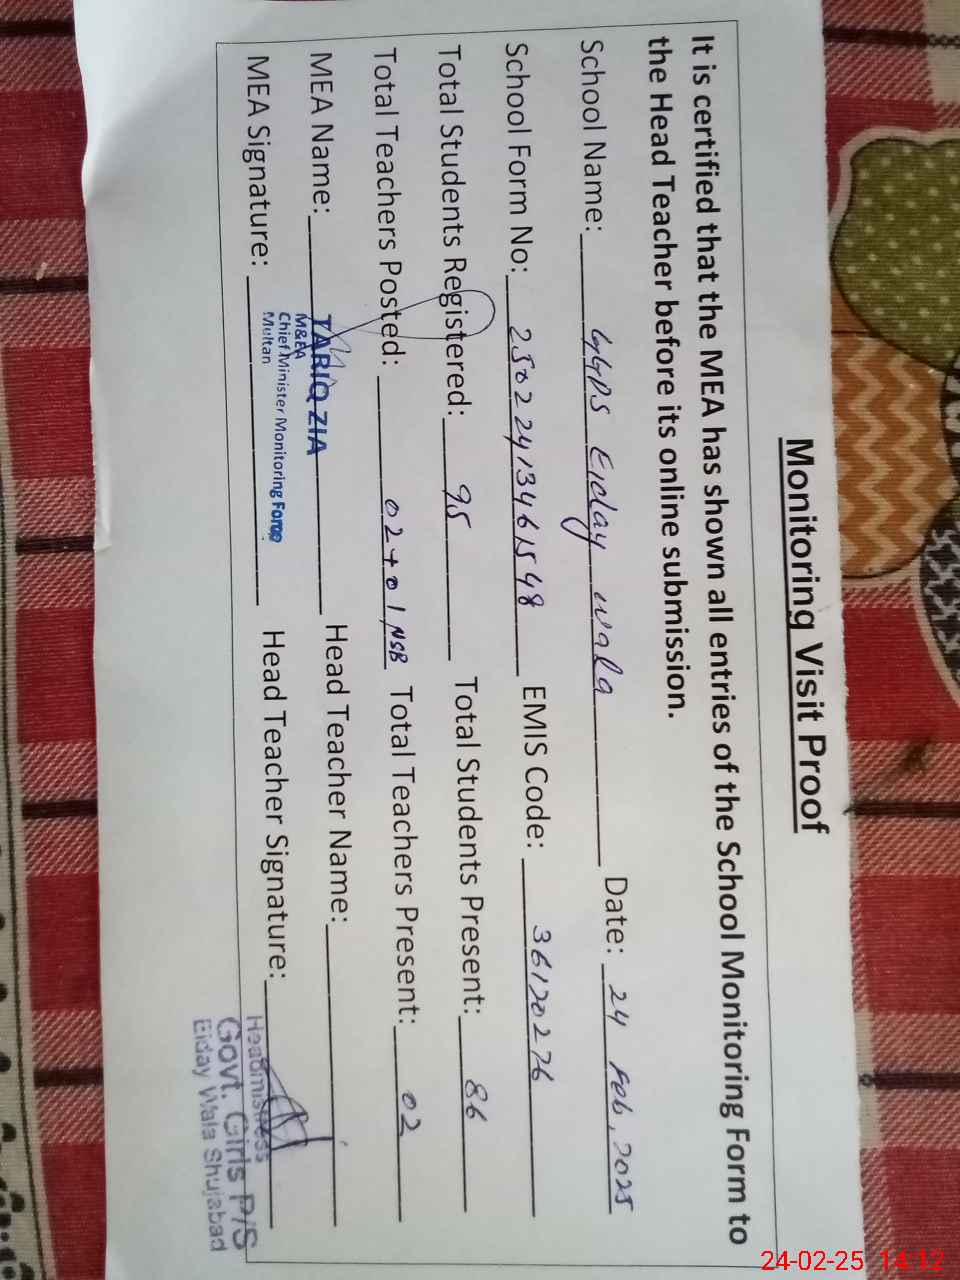 Monitoring Visit Proof
It is certified that the MEA has shown all entries of the School Monitoring Form to
the Head Teacher before its online submission.
School Name: GGPS Eiday wala Date: 24 Feb, 2025
School Form No: 25022413461548 EMIS Code: 36120276
Total Students Registered: 95 Total Students Present: 86
Total Teachers Posted: 02+01 NSB Total Teachers Present: 02
MEA Name: TARIQ ZIA Head Teacher Name:
M&EA
Chief Minister Monitoring Force
Multan
MEA Signature: Head Teacher Signature:
Headmistress
Govt. Girls P/S
Eiday Wala Shujabad
24-02-25 14:12